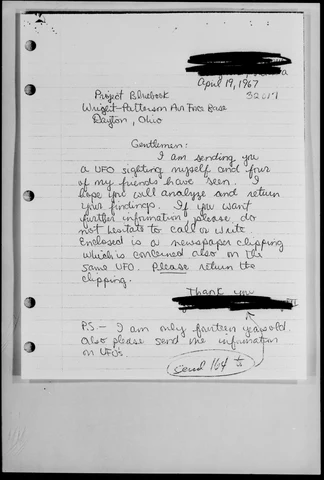 April 19, 1967
32017
Project Bluebook
Wright-Patterson Air Force Base
Dayton, Ohio
Gentlemen:
I am sending you
a UFO sighting myself and four
of my friends have seen. I
hope you will analyze and return
your findings. If you want
further information, please do
not hesitate to call or write
Enclosed is a newspaper clipping
which is concerned also on the
same UFO. Please return the
clipping.
Thank you
III
P.S. - I am only fourteen years old.
Also please send me information
on UFO's
send 164